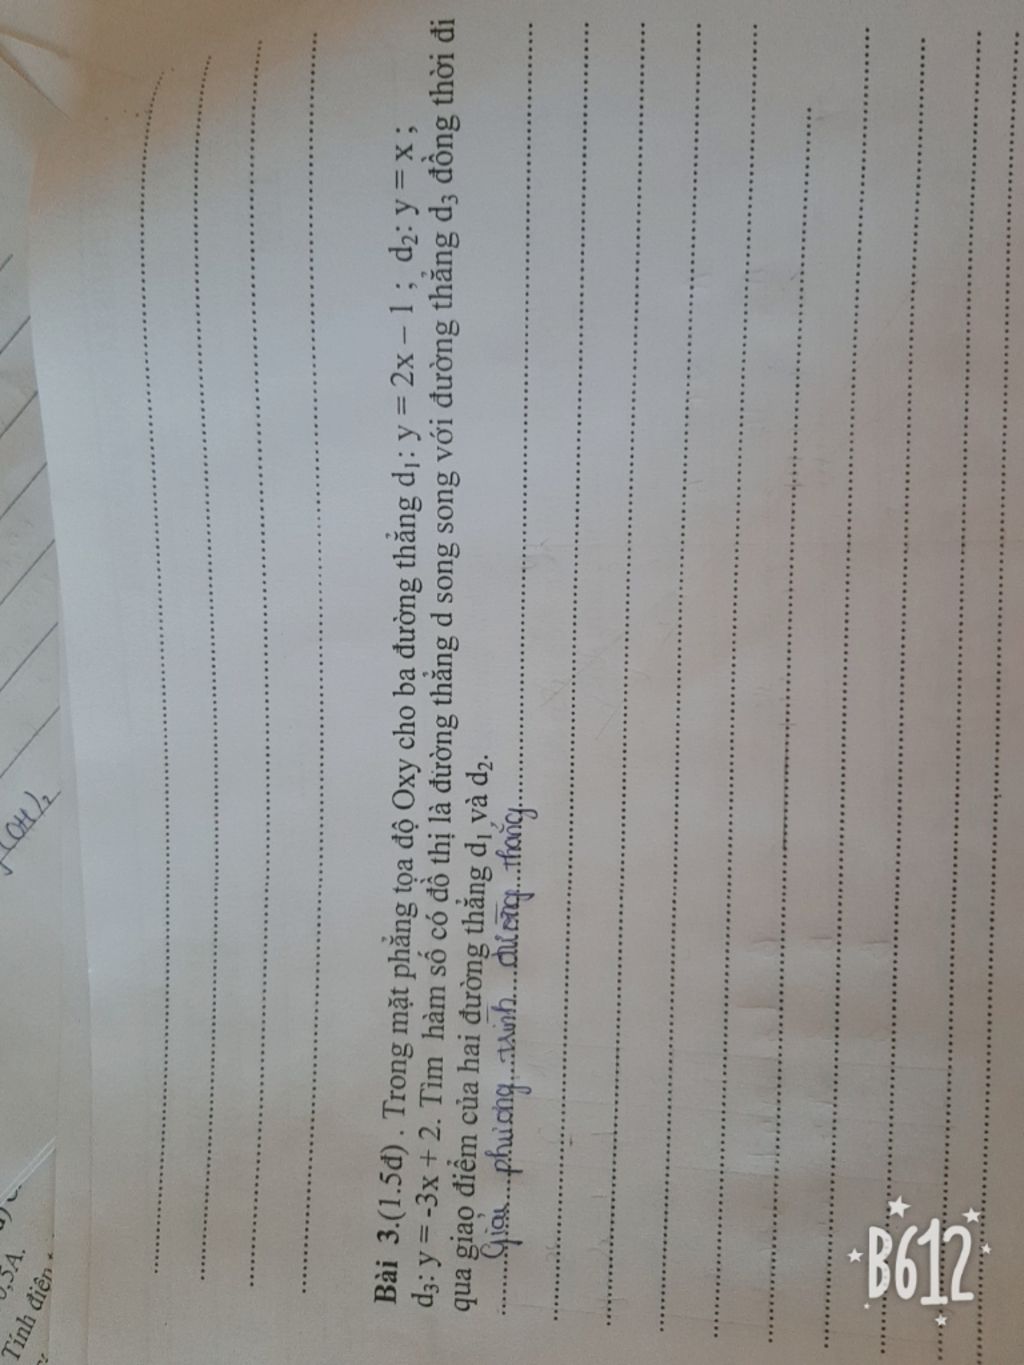 Bài 3.(1.5đ) . Trong mặt phẳng tọa độ Oxy cho ba đường thẳng d₁: y = 2x – 1 ; d₂: y = x ;
d₃: y = -3x + 2. Tìm hàm số có đồ thị là đường thẳng d song song với đường thẳng d₃ đồng thời đi
qua giao điểm của hai đường thẳng d₁ và d₂.
Giải phương trình đường thẳng
Tính điện
B612